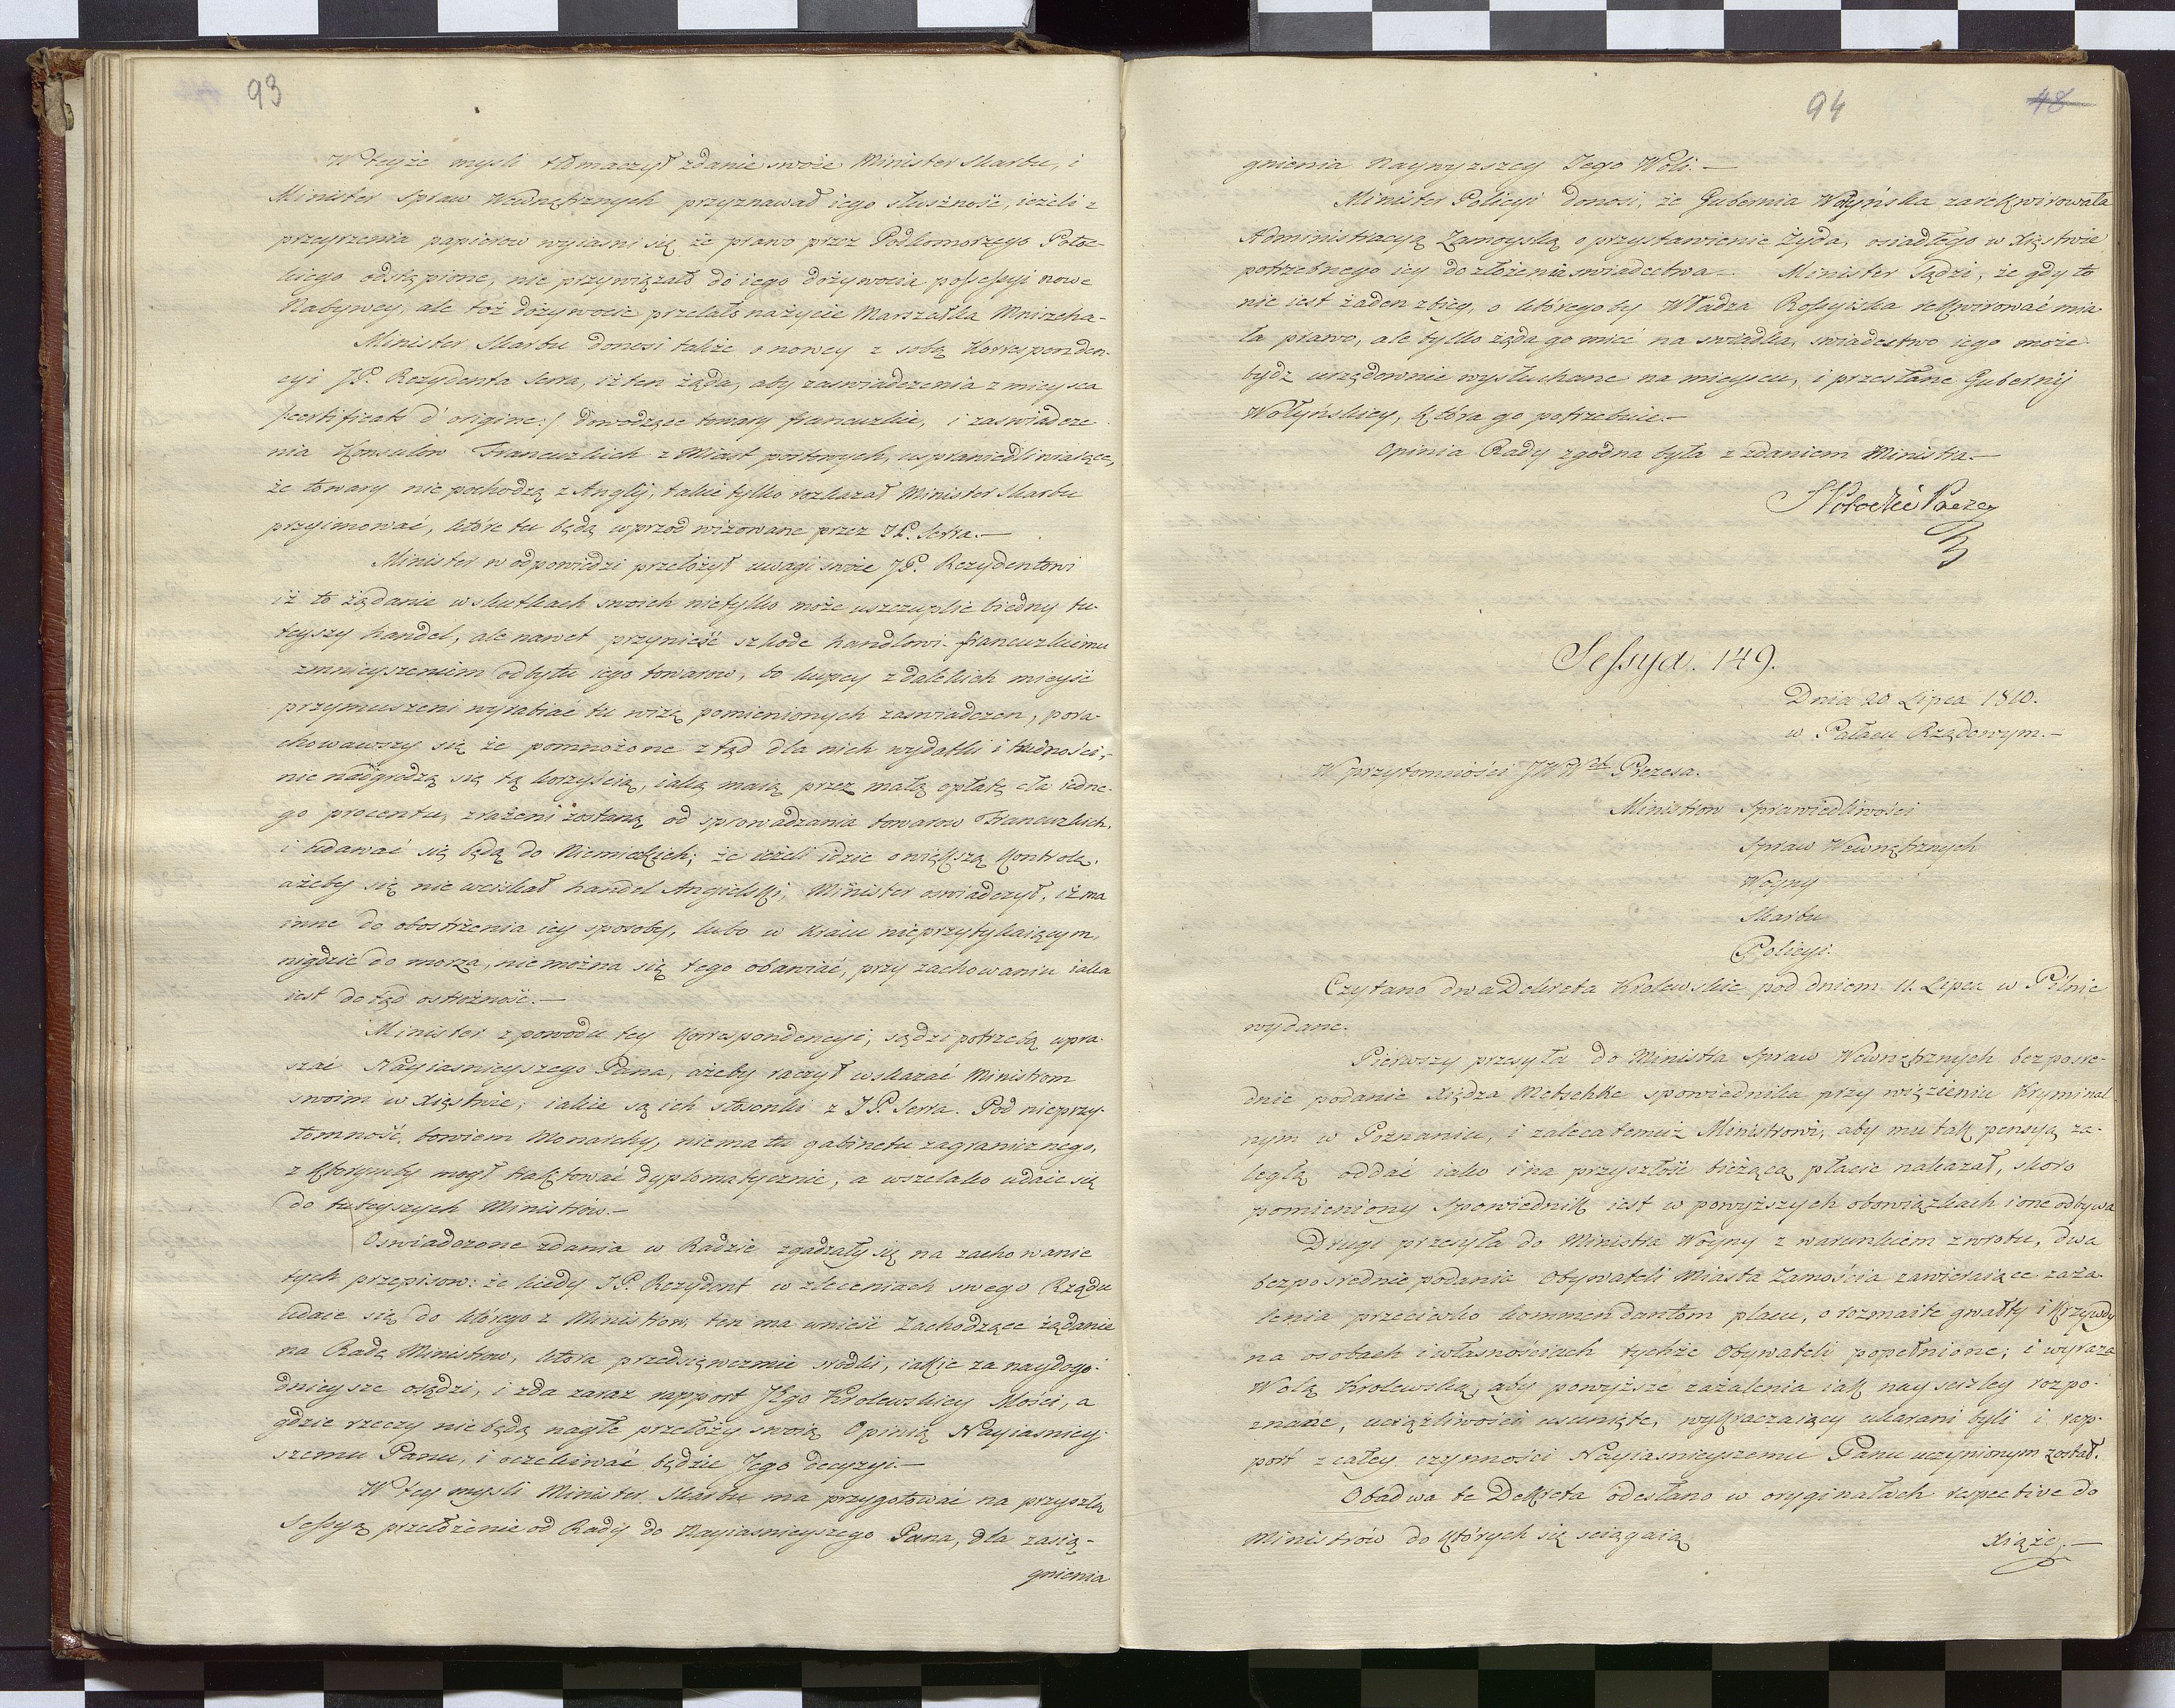 93
W teyże mysli tłomaczył zdanie swoie Minister Skarbu, i
Minister Spraw Wewnętrznych przyznawał iego słuszność, ieżeli z
przeyrzenia papierow wyiasni się że prawo przez Podkomorzego Potoc-
kiego odstąpione, nie przywiązało do iego dożywocia possessyi nowe
Nabywcy, ale toż dożywocie przelało na życie Marszałka Mniszcha-
Minister Skarbu donosi także o nowey z sobą Korresponden-
cyi JP. Rezydenta Serra, iż ten żąda, aby zaswiadczenia z mieysca
/:certificats d'origine:/ dowodzące towary francuzkie, i zaswiadcze
nia Konsulow Francuzkich z Miast portowych, usprawiedliwiaiące,
że towary nie pochodzą z Anglij, takie tylko rozkazał Minister Skarbu
przyimować, które tu będą wprzod wizowane przez JP. Serra.—
Minister w odpowiedzi przełożył uwagi swoie JP. Rezydentowi
iż to żądanie w skutkach swoich nietylko może uszczuplić biedny tu-
teyszy handel, ale nawet przynieść szkodę handlowi francuzkiemu
zmnieyszeniem odbytu iego towarow, bo kupcy z dalekich mieysc
przymuszeni wyrabiać tu wizę pomienionych zaswiadczen, pora-
chowawszy się że pomnożone ztąd dla nich wydatki i trudności,-
nie nadgrodzą się tą korzyścią, iaką maią przez małą opłatę cła iedne-
go procentu, zrażeni zostaną od sprowadzania towarow Francuzkich,
i udawać się będą do Niemieckich; że ieżeli idzie o większą Kontrolę,
ażeby się nie wciskał handel Angielski, Minister oswiadczył, iż ma
inne do obostrzenia iey sposoby, lubo w Kraiu nieprzytykaiącym,
nigdzie do morza, nie można się tego obawiać, przy zachowaniu iaka
iest dotąd ostrożność.—
Minister z powodu tey Korrespondencyi, sądzi potrzebą upra-
szać Nayiasnieyszego Pana, ażeby raczył wskazać Ministrom
swoim w Xięstwie, iakie są ich stosonki z JP. Serra. Pod nieprzy-
tomność bowiem Monarchy, niema tu gabinetu zagranicznego,
z którymby mogł traktować dyplomatycznie, a wszelako udaie się
do tuteyszych Ministrów.—
Oswiadczone zdania w Radzie zgadzały się na zachowanie
tych przepisow: że kiedy JP. Rezydent w zleceniach swego Rządu
udaie się do którego z Ministrow, ten ma wnieść zachodzące żądanie
na Radę Ministrow, która przedsięweźmie srodki, iakie za naydogo-
dnieysze osądzi, i zda zaraz rapport Jego Krolewskiey Mości, a
gdzie rzeczy nie będą nagłe przełoży swoią Opinią Nayiasniey-
szemu Panu, i oczekiwać będzie Jego decyzyi.—
W tey mysli Minister Skarbu ma przygotować na przyszłą
Sessyą przełożenie od Rady do Nayiasnieyszego Pana, dla zasią-
gnienia
94
48
gnienia Naywyzszey Jego Woli.—
Minister Policyi donosi, że Gubernia Wołyńska zarekwirowała
Administracyą Zamoyską o przystawienie Żyda, osiadłego w Xięstwie
potrzebnego iey do złożenia swiadectwa— Minister Sądzi, że gdy to
nie iest żaden zbieg, o któregoby Władza Rossyiska rekwirować mia
ła prawo, ale tylko żąda go mieć na swiadka, swiadectwo iego może
bydź urzędownie wysłuchane na mieyscu, i przesłane Gubernij
Wołyńskiey, która go potrzebuie.—
Opinia Rady zgodna była z zdaniem Ministra.—
S Potocki Prezes
Sessya. 149.
Dnia 20 Lipca 1810.
w Pałacu Rządowym.—
W przytomności JWW Prezesa.
Ministrow Sprawiedliwości
Spraw Wewnętrznych
Woyny
Skarbu
Policyi.
Czytano dwa Dekreta Krolewskie pod dniem 11. Lipca w Pilnic
wydane.
Pierwszy przesyła do Ministra Spraw Wewnętrznych bezposre-
dnie podanie Xiędza Metschke spowiednika przy więzieniu Kryminal-
nym w Poznaniu, i zaleca temuż Ministrowi, aby mu tak pensyą za-
ległą oddać iako i na przyszłość bieżącą płacić nakazał, skoro
pomieniony Spowiednik iest w powyższych obowiązkach i one odbywa
Drugi przesyła do Ministra Woyny z warunkiem zwrotu, dwa
bezposrednie podania Obywateli Miasta Zamościa zawieraiące zaża-
lenia przeciwko kommendantom placu, o rozmaite gwałty i krzywdy
na osobach i własnościach tychże Obywateli popełnione; i wyraża
Wolą Krolewską, aby powyższe zażalenia iak nayscisley rozpo-
znane, uciążliwości usunięte, wykraczaiący ukarani byli i rap-
port z całey czynności Nayiasnieyszemu Panu uczynionym został.
Obadwa te Dekreta odesłano w oryginałach respective do
Ministrów do których się sciągaią
Xiąże,—